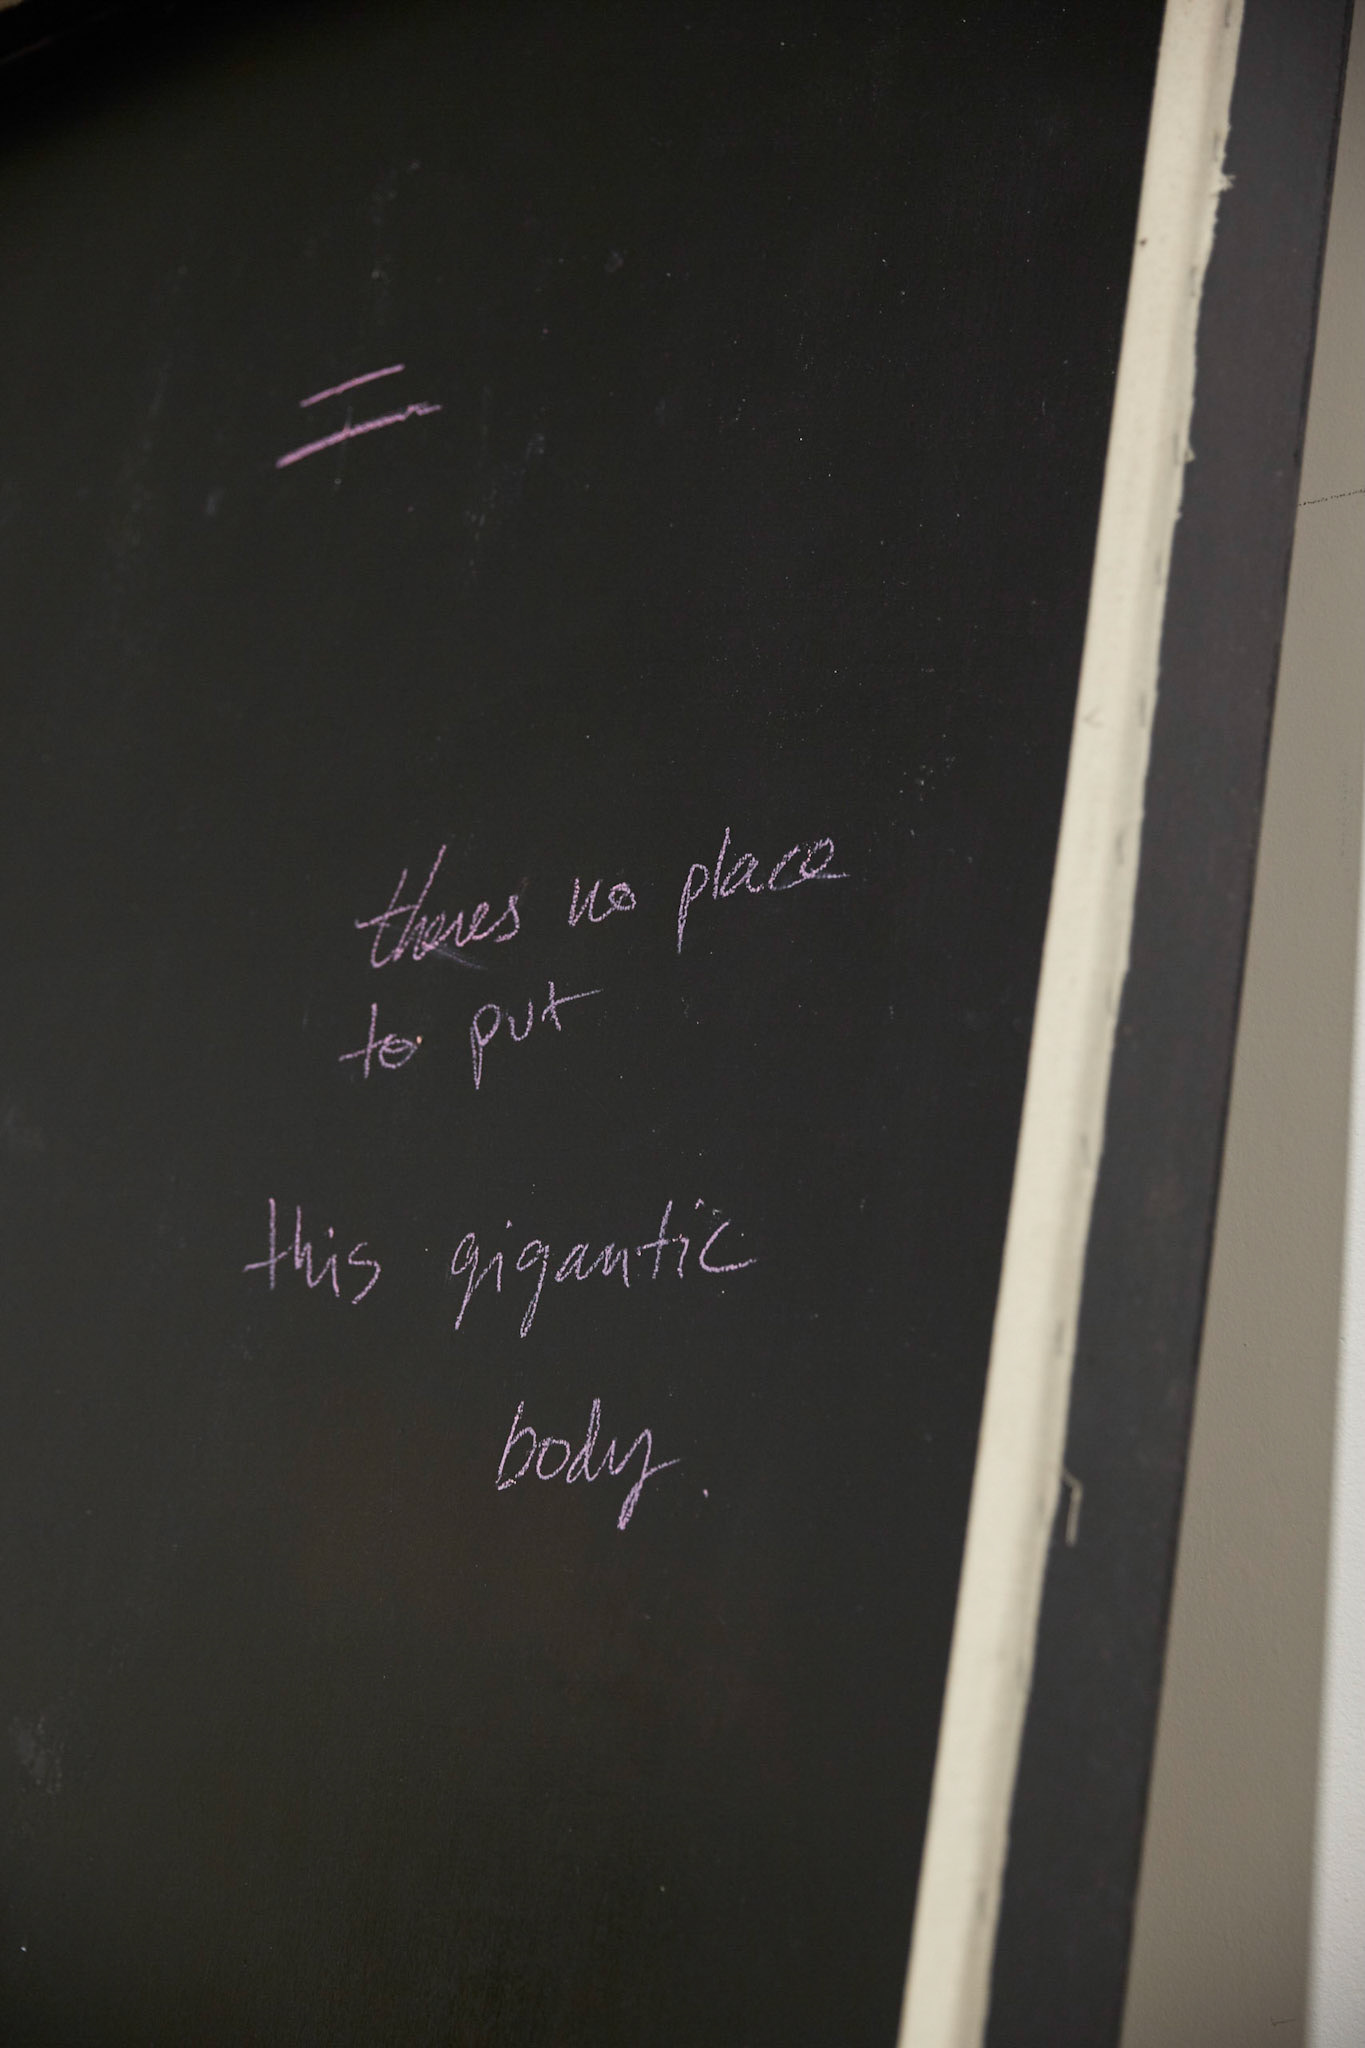 theres no place
to put
this gigantic
body.